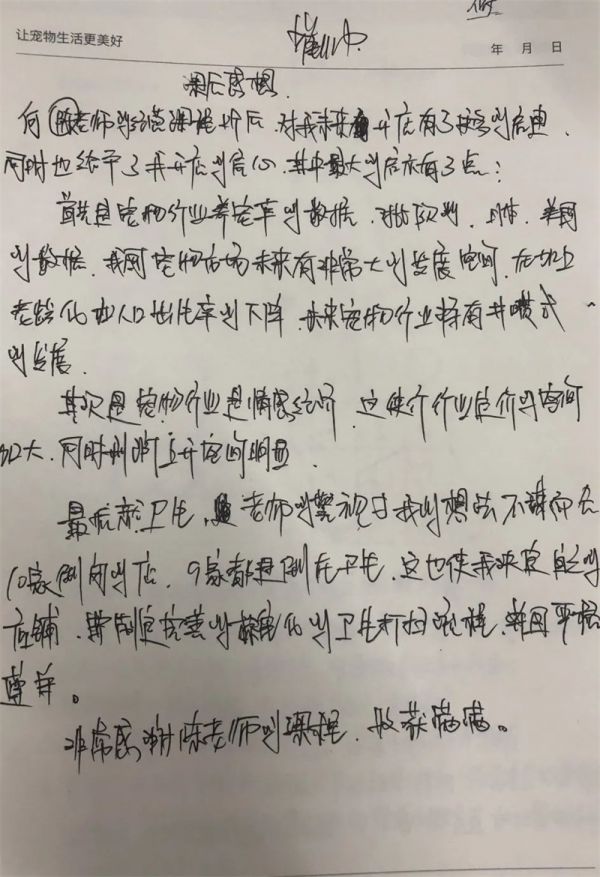 让宠物生活更美好
年 月 日
课后感想.
陈老师的 课程 后,对我未来开店有了 的启迪,
同时也给予了我开店的信心,其中最大的启示有3点:
首先是宠物行业养宠率的数据,对比 的,日本,美国
的数据,我国宠物市场未来有非常大的发展空间,在加上
老龄化和人口出生率的下降,未来宠物行业将有井喷式
的发展.
其次是宠物行业是情感经济,这使个行业定价的空间
加大,同时利润上升空间明显.
最后就是卫生,老师的 与我的想法不谋而合
10家倒闭的店,9家都是倒在卫生,这也使我决定自己的
店铺,要制定完善的 化的卫生打扫流程,并且严格
遵守。
非常感谢陈老师的课程,收获满满。